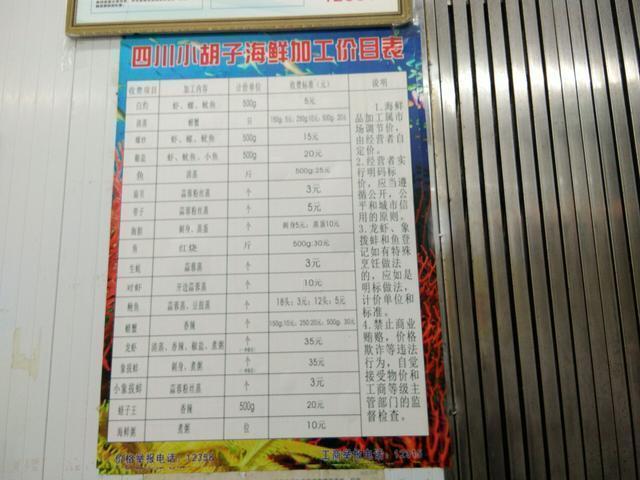 四川小胡子海鲜加工价目表
收费项目 加工内容 计价单位 收费标准（元） 说明
白灼 虾、螺、鱿鱼 500g 5元
清蒸 螃蟹 只
爆炒 虾、螺、鱿鱼 500g 15元
椒盐 虾、鱿鱼、小鱼 500g 20元
鱼 清蒸 斤 500g:25元
扇贝 蒜蓉粉丝蒸 个 3元
带子 蒜蓉粉丝蒸 个 5元
海胆 刺身、蒸蛋 个 刺身5元；蒸蛋10元
鱼 红烧 斤 500g:30元
生蚝 蒜蓉蒸 个 3元
对虾 开边蒜蓉蒸 个 10元
鲍鱼 蒜蓉蒸、豆豉蒸 个 18头：3元；12头：5元
螃蟹 香辣 个 150g:10元，250:20元，500g：30元
龙虾 清蒸、香辣、椒盐、煮粥 个 35元
象拔蚌 刺身、煮粥 个 35元
小象拔蚌 蒜蓉粉丝蒸 个 3元
蛏子王 香辣 500g 20元
海鲜粥 煮粥 位 10元
1.海鲜
品加工属市
场调节价，
由经营者自
定价。
2.经营者实
行明码标
价，应当遵
循公开，公
平和城市信
用的原则。
3.龙虾、象
拨蚌和鱼登
记如有特殊
烹饪做法
的，应如是
明标做法，
计价单位和
标准。
4.禁止商业
贿赂，价格
欺诈等违法
行为，自觉
接受物价和
工商等级主
管部门的监
督检查。
价格举报电话：12358 工商举报电话：12315